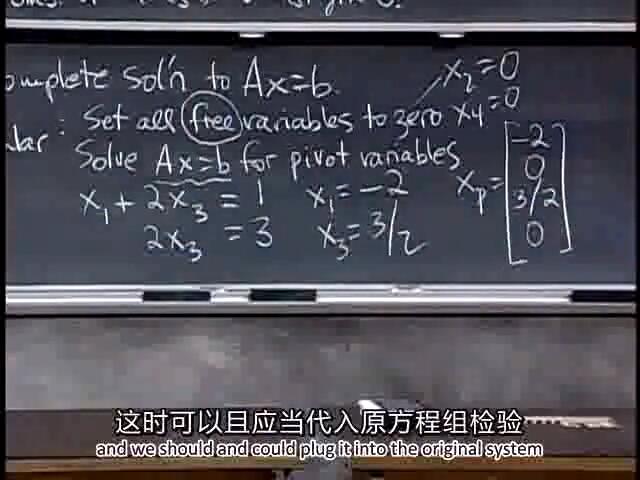 omplete sol'n to Ax=b.
x₂=0
ular: Set all free variables to zero x4=0
Solve Ax=b for pivot variables
x₁+2x₃=1 x₁=-2
2x₃=3 x₃=3/2
xp=
-2
0
3/2
0
这时可以且应当代入原方程组检验
and we should and could plug it into the original system